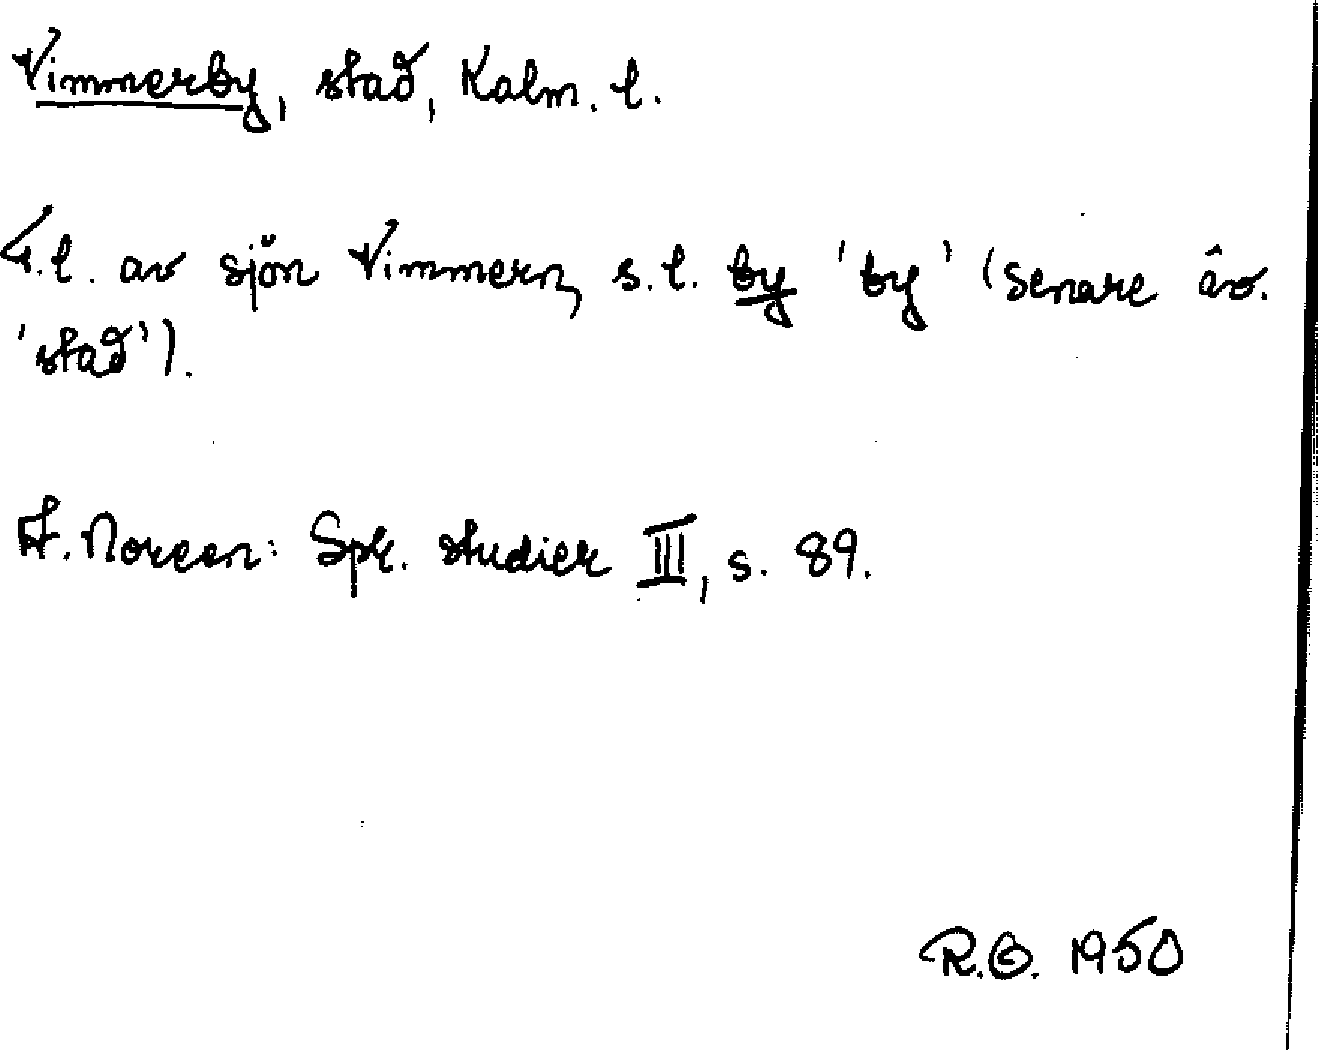 Vimmerby, stad, Kalm. l.
F.l. av sjön Vimmern, s.l. by 'by' (senare äv.
'stad').
A. Noreen: Spr. studier III, s. 89.
R.O. 1950